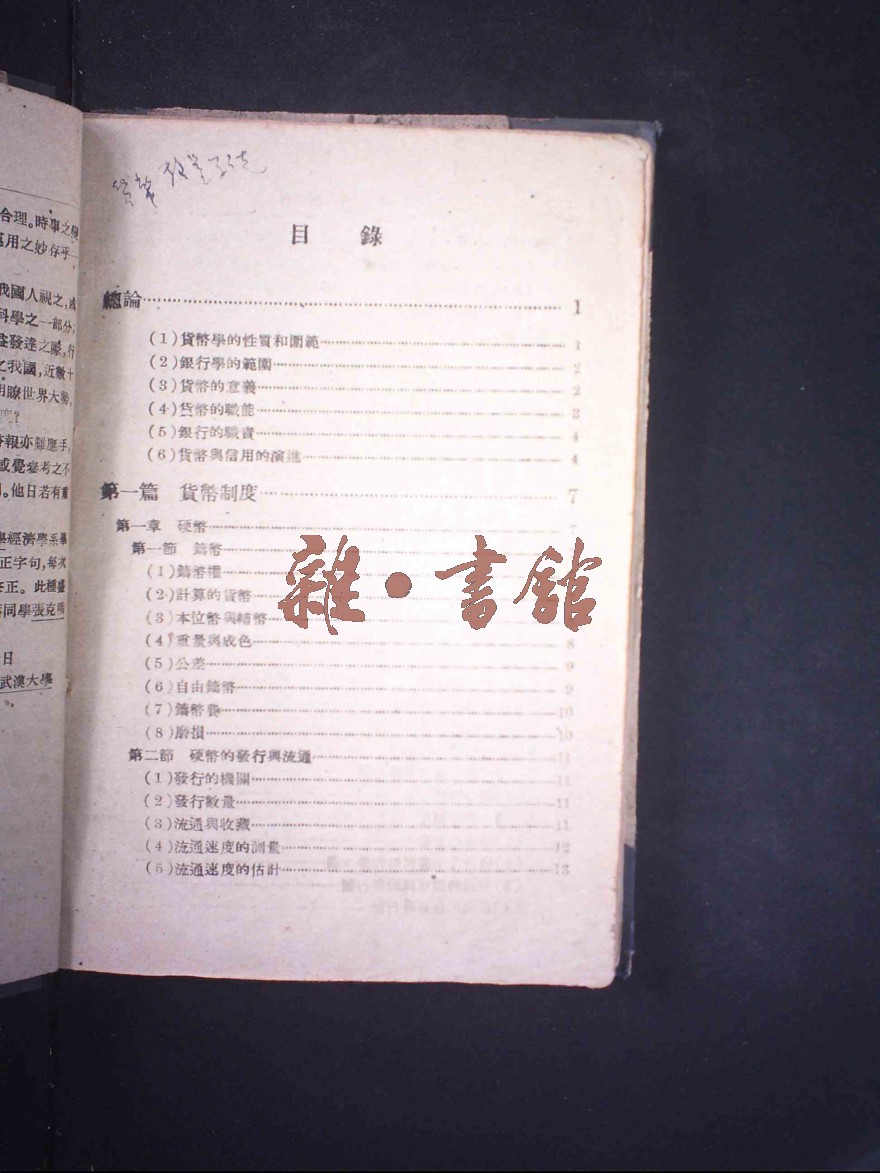 合理。時事之變
運用之妙存乎一
我國人視之,或
科學之一部分,
益發達之際,行
之我國,近數十
明瞭世界大勢,
書報亦難應手,
或覺參考之不
。他日若有重
學經濟學系畢
正字句,每次
正。此種盛
同學張克明
日
武漢大學
目錄
總論 1
(1)貨幣學的性質和範圍 1
(2)銀行學的範圍 2
(3)貨幣的意義 2
(4)貨幣的職能 3
(5)銀行的職責 4
(6)貨幣與信用的演進 4
第一篇 貨幣制度 7
第一章 硬幣 7
第一節 鑄幣
(1)鑄幣權
(2)計算的貨幣
(3)本位幣與輔幣
(4)重量與成色 8
(5)公差 9
(6)自由鑄幣 9
(7)鑄幣費 10
(8)磨損 10
第二節 硬幣的發行與流通 11
(1)發行的機關 11
(2)發行數量 11
(3)流通與收藏 11
(4)流通速度的測量 12
(5)流通速度的估計 13
雜·書館